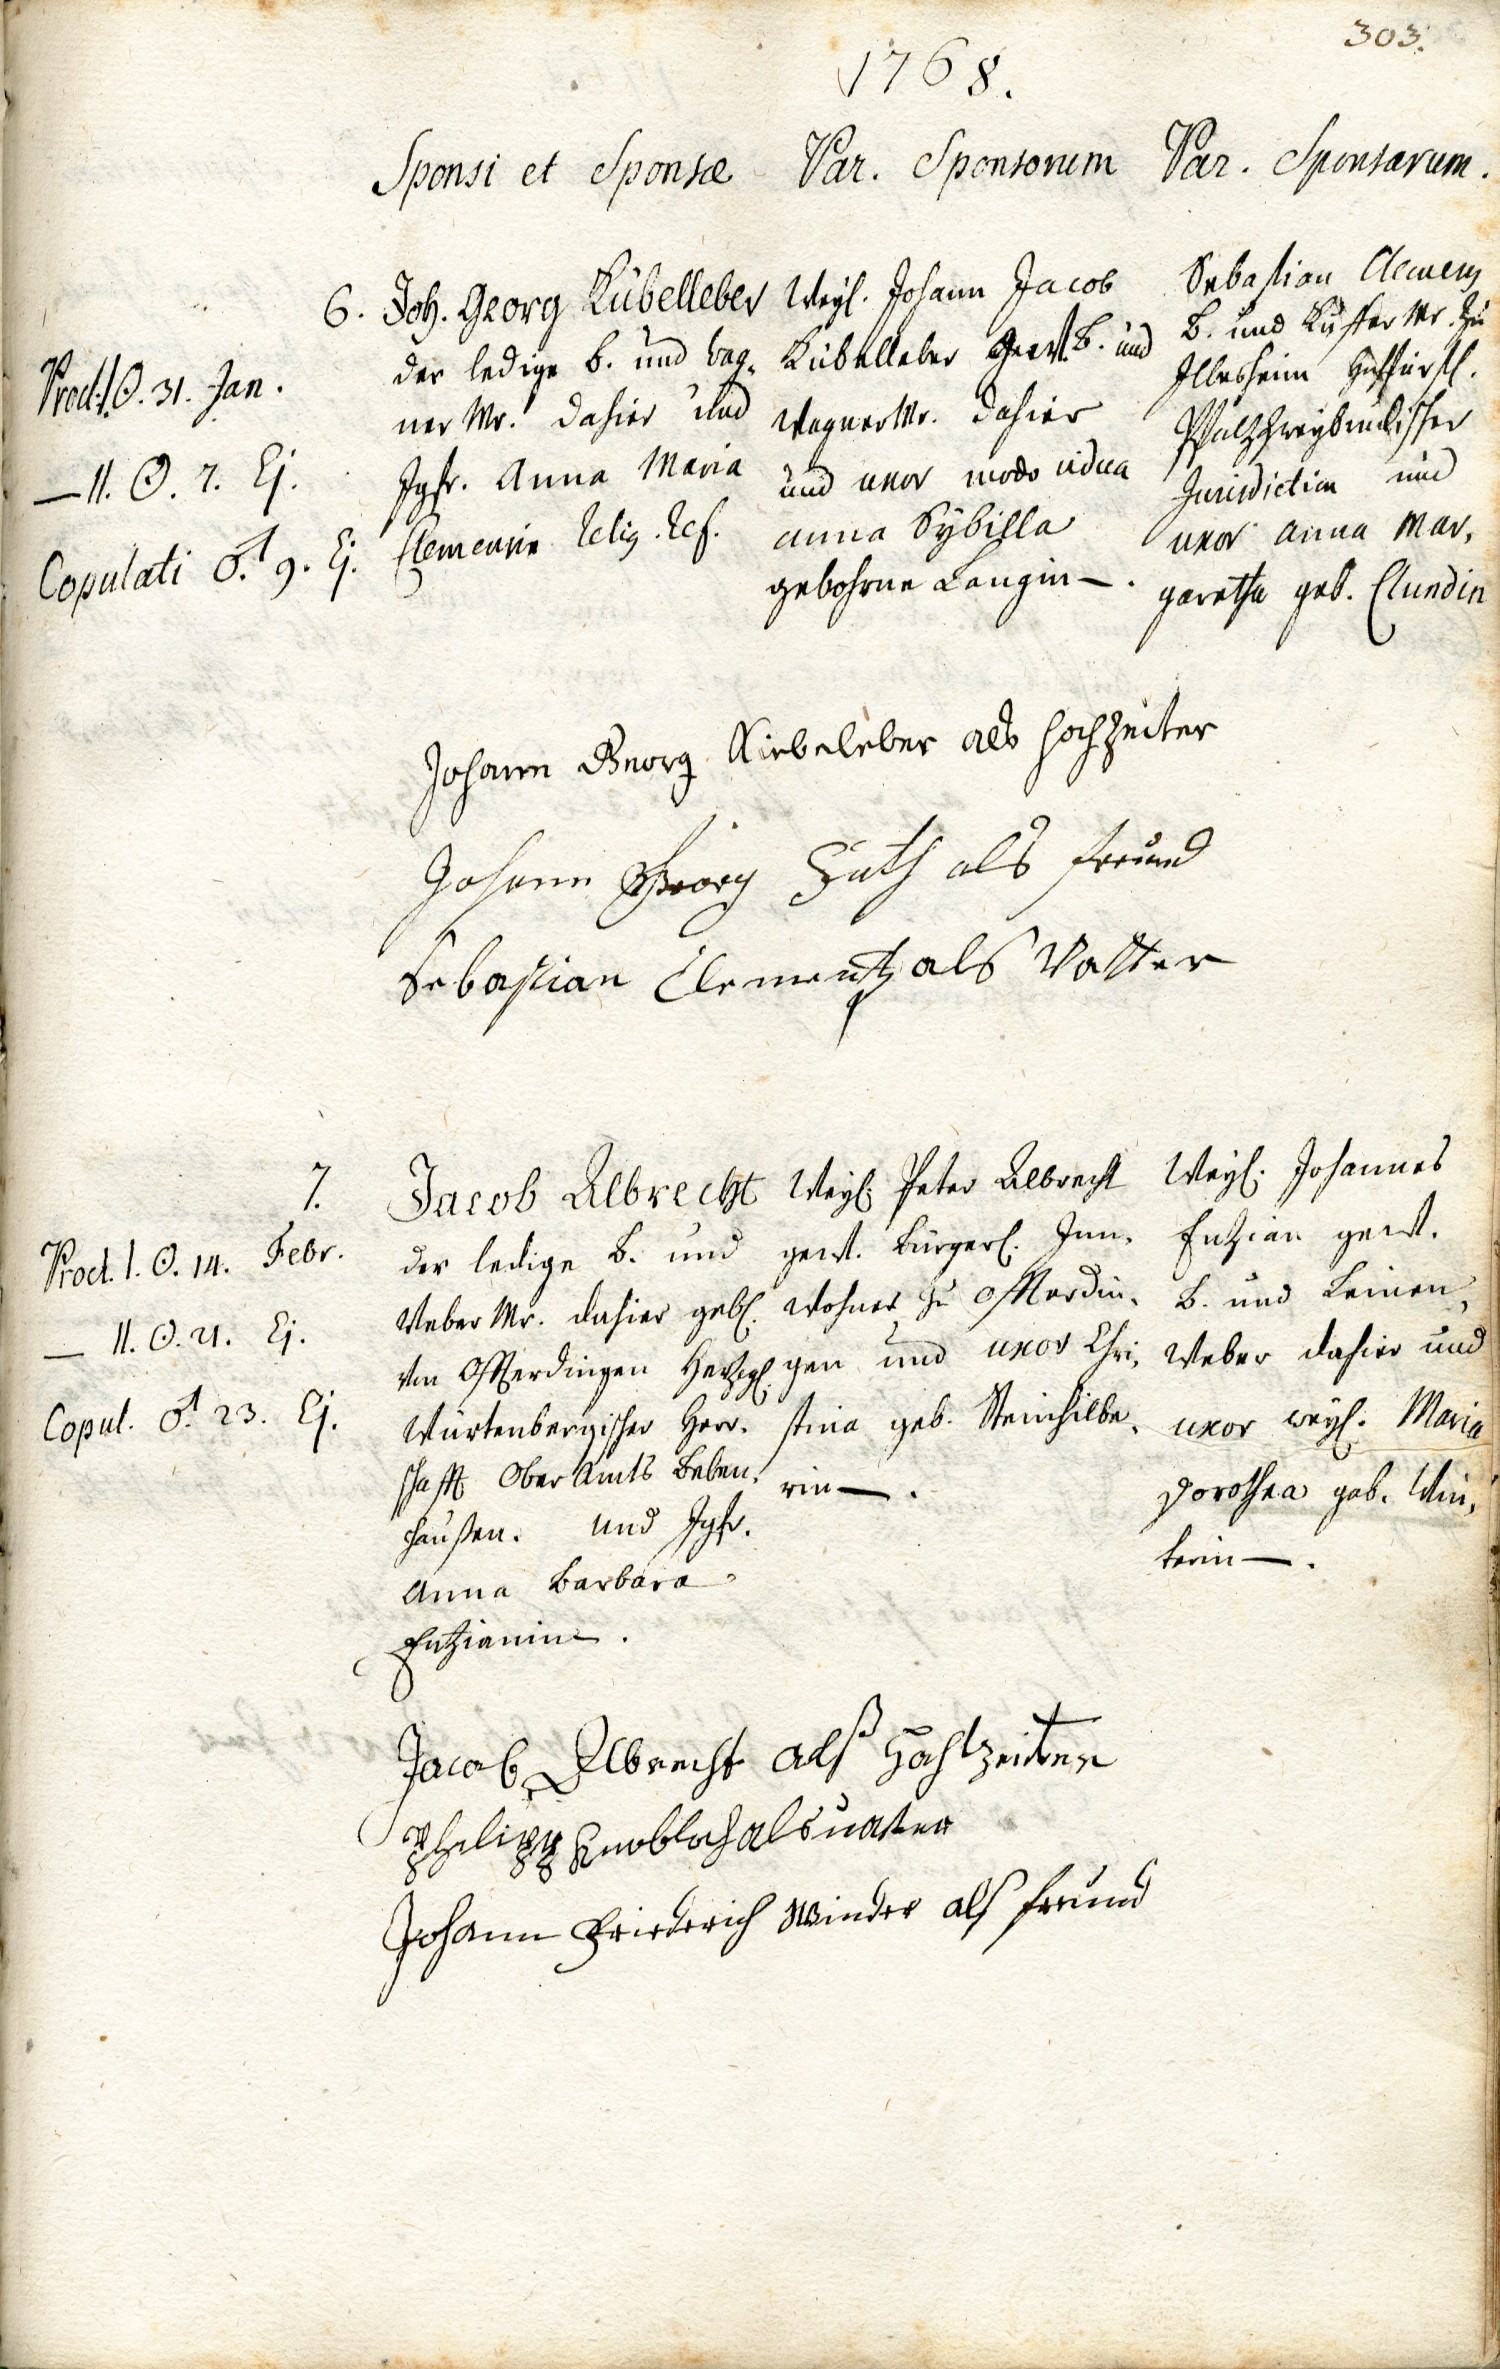 303.
1768.
Sponsi et Sponsæ Par. Sponsorum Par. Sponsarum.
6.
Procl. I. ☉. 31. Jan.
— II. ☉. 7. Ej.
Copulati ♂. 9. Ej.
Joh. Georg Kübelleber
der ledige B. und Wag„
ner Mr. dahier und
Jgfr. Anna Maria
Clemenzin Relig. Ref.
Weyl. Johann Jacob
Kübelleber Gewt. B. und
Wagner Mr. dahier
und uxor modo vidua
Anna Sÿbilla
gebohrne Langin —.
Sebastian Clemens
B. und Küffer Mr. zu
Ilbesheim Hochfürstl.
Pfalzzweybrückischer
Jurisdiction und
uxor Anna Mar„
garetha geb. Clundin
Johann Georg Kiebeleber als Hochzeiter
Johann Georg Huth als freund
Sebastian Clementz als Vatter
7.
Procl. I. ☉. 14. Febr.
— II. ☉. 21. Ej.
Copul. ♂. 23. Ej.
Jacob Albrecht
der ledige B. und
Weber Mr. dahier gebl.
von Offterdingen Herzogl.
Würtenbergischer Herr„
schafft Ober Amts Beben„
haußen. und Jgfr.
Anna Barbara
Entzianin.
Weyl. Peter Albrecht
gewt. Bürgerl. Inn„
wohner zu Offterdin„
gen und uxor Chri„
stina geb. Steinhilbe„
rin —.
Weyl. Johannes
Entzian gewt.
B. und Leinen„
Weber dahier und
uxor weyl. Maria
Dorothea geb. Win„
terin —.
Jacob Albrecht alß Hochtzeiter
Philipp Knobloch als vatter
Johann Friederich Winder als freund